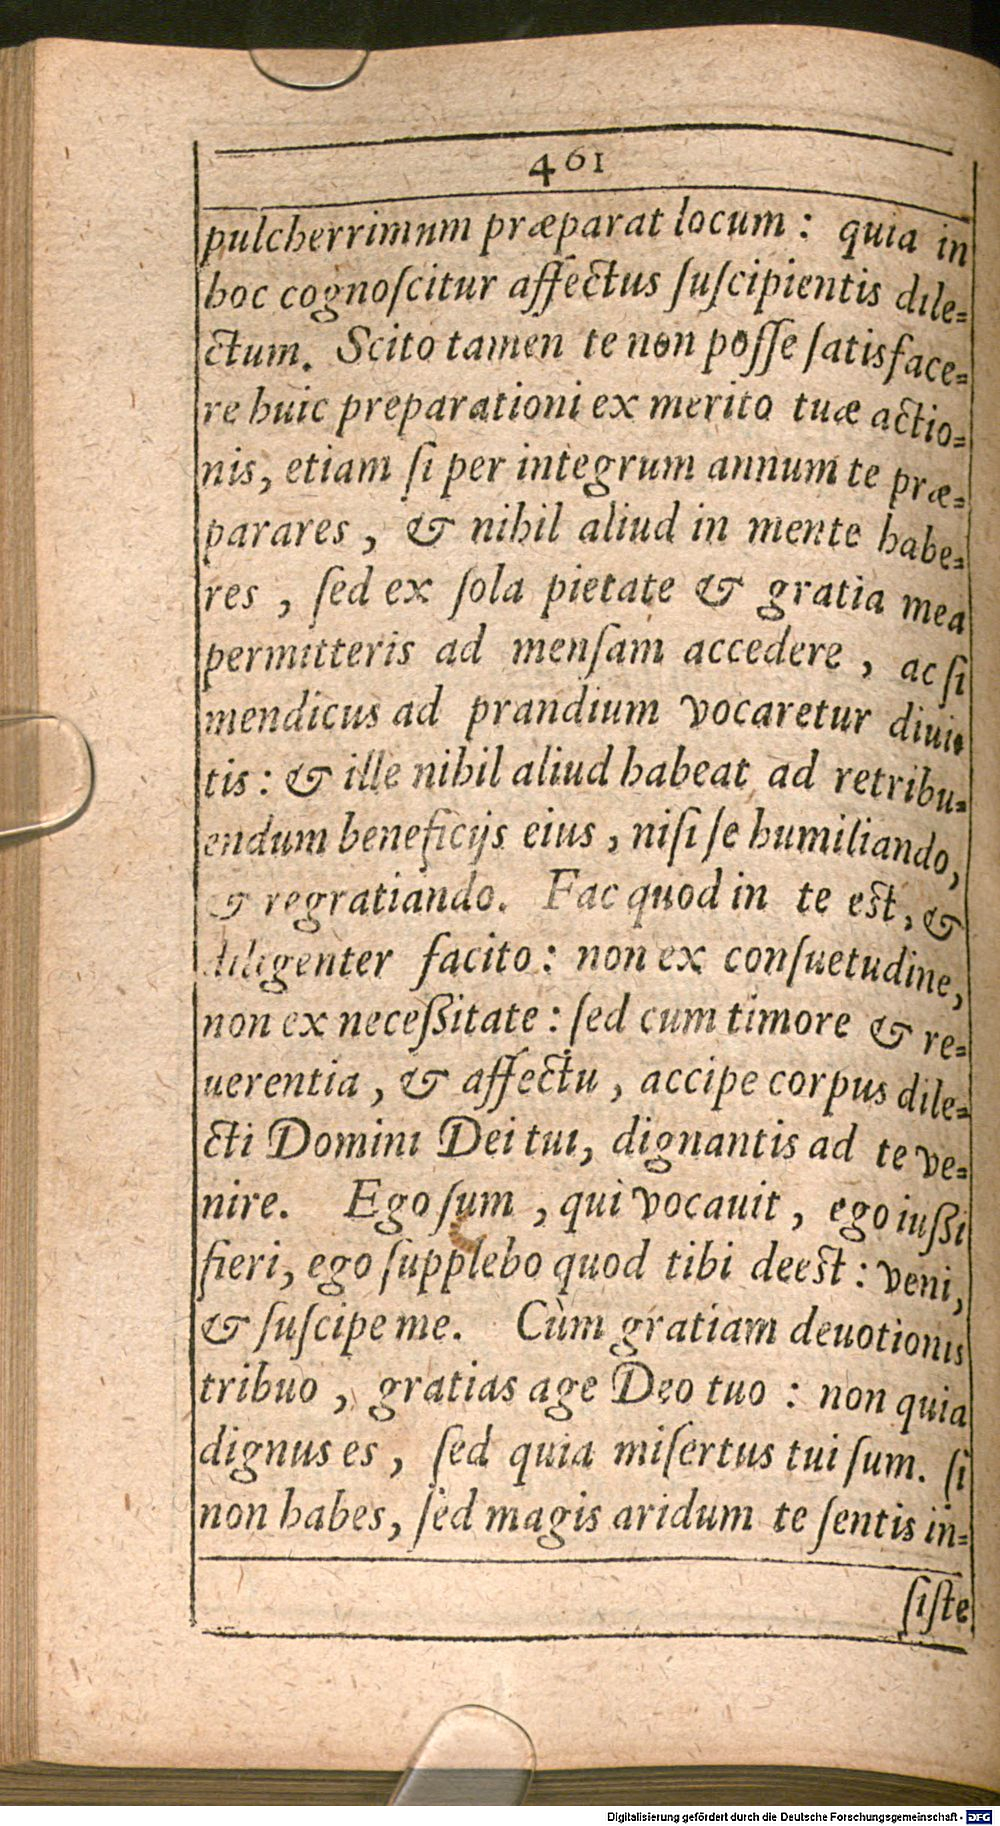 461
pulcherrimum præparat locum : quia in
hoc cognoſcitur affectus ſuſcipientis dile-
ctum. Scito tamen te non poſſe ſatisface-
re huic preparationi ex merito tuæ actio-
nis, etiam ſi per integrum annum te præ-
parares , & nihil aliud in mente habe-
res , ſed ex ſola pietate & gratia mea
permitteris ad menſam accedere , ac ſi
mendicus ad prandium vocaretur diui-
tis : & ille nihil aliud habeat ad retribu-
endum beneficijs eius , niſi ſe humiliando,
& regratiando. Fac quod in te est, &
diligenter facito : non ex conſuetudine,
non ex neceßitate : ſed cum timore & re-
uerentia , & affectu , accipe corpus dile-
cti Domini Dei tui, dignantis ad te ve-
nire. Ego ſum , qui vocauit , ego iußi
fieri, ego ſupplebo quod tibi deest : veni,
& ſuſcipe me. Cùm gratiam deuotionis
tribuo , gratias age Deo tuo : non quia
dignus es , ſed quia miſertus tui ſum. ſi
non habes, ſed magis aridum te ſentis in-
ſiſte
Digitalisierung gefördert durch die Deutsche Forschungsgemeinschaft - DFG